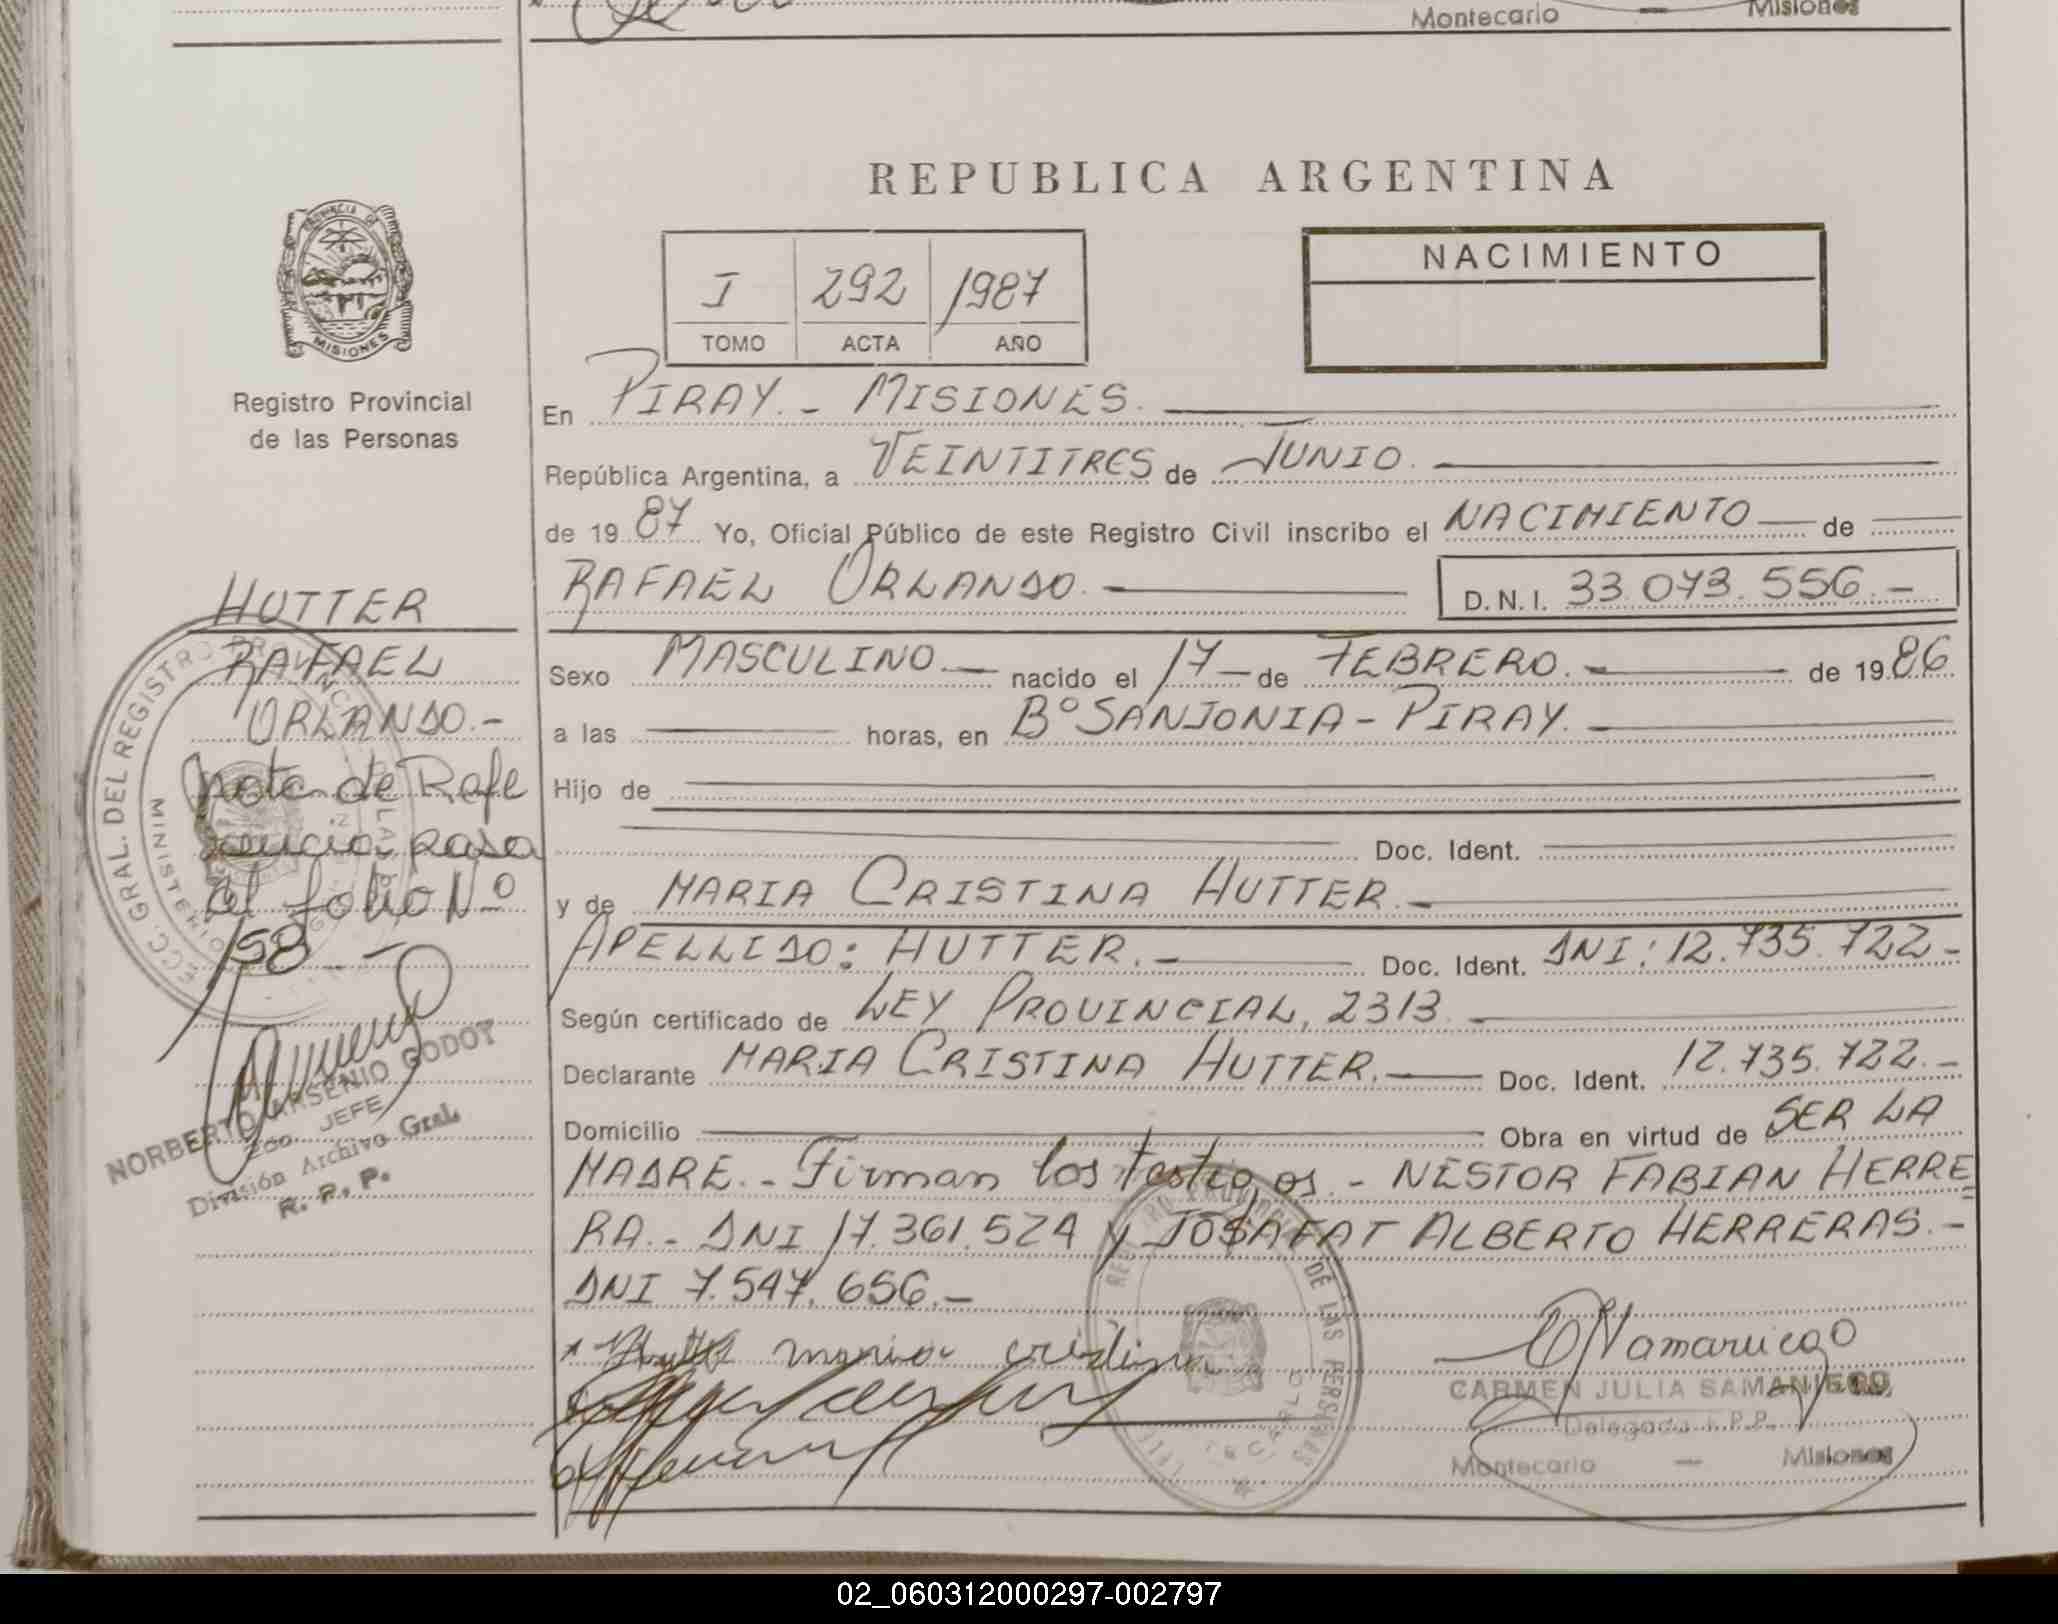 Montecarlo — Misiones
REPUBLICA ARGENTINA
PROVINCIA DE
MISIONES
Registro Provincial
de las Personas
I 292 1987
TOMO ACTA AÑO
NACIMIENTO
En PIRAY. - MISIONES.
República Argentina, a VEINTITRES de JUNIO.
de 1987 Yo, Oficial Público de este Registro Civil inscribo el NACIMIENTO — de —
RAFAEL ORLANDO. — D.N.I. 33.073.556.-
Sexo MASCULINO. — nacido el 17 — de FEBRERO. — de 1986
a las — horas, en Bº SANTONIA - PIRAY. —
Hijo de —
— Doc. Ident. —
y de MARIA CRISTINA HUTTER. —
APELLIDO: HUTTER. — Doc. Ident. DNI: 12.735.722-
Según certificado de LEY PROVINCIAL, 2313. —
Declarante MARIA CRISTINA HUTTER. — Doc. Ident. 12.735.722.-
Domicilio — Obra en virtud de SER LA
MADRE. - Firman los testigos. - NESTOR FABIAN HERRE
RA. - DNI 17.361.524 y JOSAFAT ALBERTO HERRERAS. -
DNI 7.547.656.-
Hutter maria cristina
CARMEN JULIA SAMANIEGO
Delegada R.P.P.
Montecarlo — Misiones
HUTTER
RAFAEL
ORLANDO.-
Nota de Refe
rencia pasa
al folio Nº
158.-
NORBERTO ARSENIO GODOY
2do. JEFE
División Archivo Gral.
R. P. P.
02_060312000297-002797